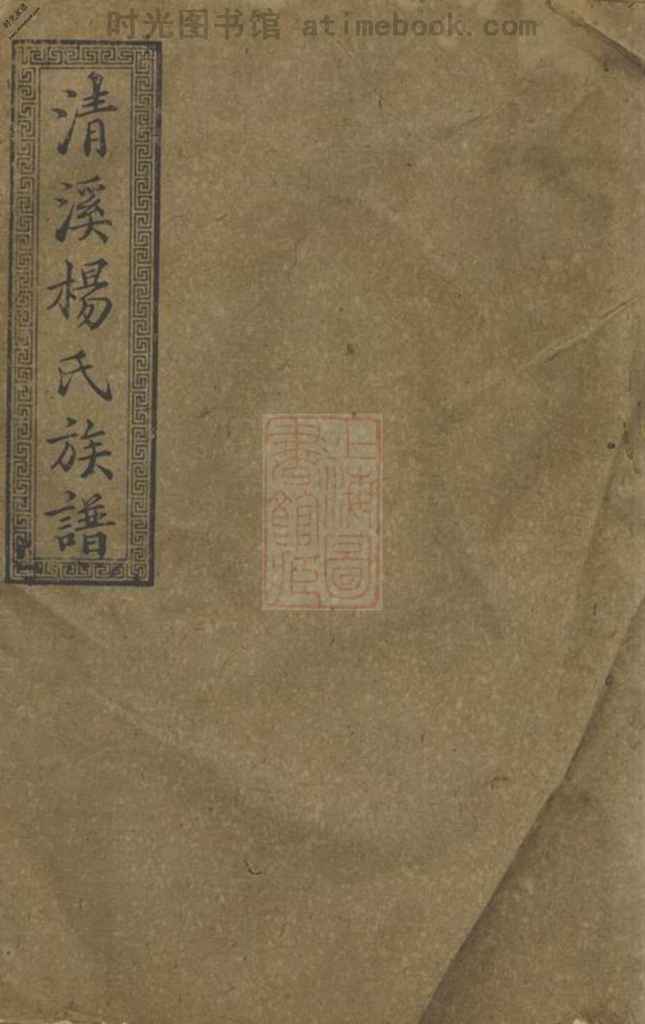 时光图书馆 atimebook.com
清溪楊氏族譜
上海圖
書館藏